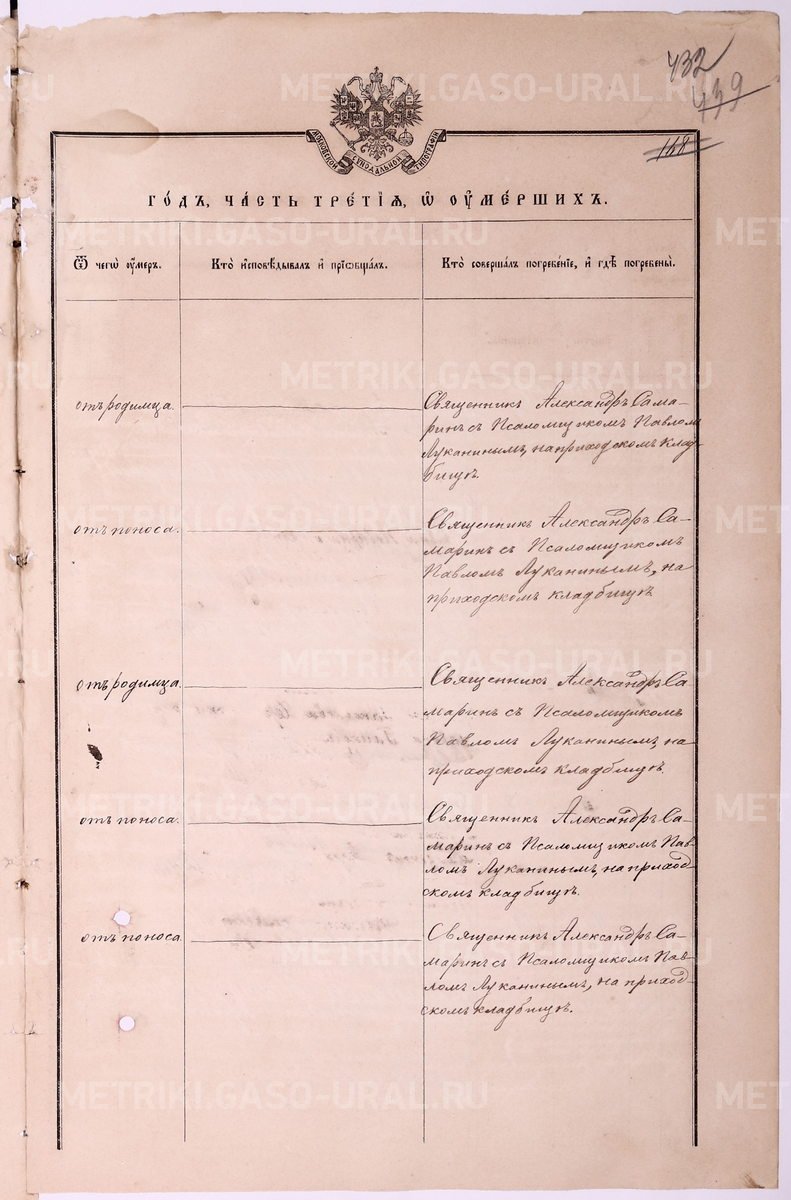 432
439
168
МОСКОВСКОЙ СѴНОДАЛЬНОЙ ТИПОГРАФІИ
ГО́ДЪ, ЧА́СТЬ ТРЕ́ТІѦ, Ѡ ОУМЕ́РШИХЪ.
Ѿ чегѡ̀ ᲂу҆́меръ.
Кто̀ и҆сповѣ́дывалъ и҆ прїѡбща́лъ.
Кто̀ соверша́лъ погребе́нїе, и҆ гдѣ̀ погребены̀.
отъ родимца.
Священникъ Александръ Сама-
ринъ съ Псаломщикомъ Павломъ
Луканинымъ, на приходскомъ клад-
бищѣ.
отъ поноса.
Священникъ Александръ Са-
маринъ съ Псаломщикомъ
Павломъ Луканинымъ, на
приходскомъ кладбищѣ
отъ родимца.
Священникъ Александръ Са
маринъ съ Псаломщикомъ
Павломъ Луканинымъ, на
приходскомъ кладбищѣ.
отъ поноса.
Священникъ Александръ Са-
маринъ съ Псаломщикомъ Пав-
ломъ Луканинымъ, на приход-
скомъ кладбищѣ.
отъ поноса
Священникъ Александръ Са-
маринъ съ Псаломщикомъ Пав-
ломъ Луканинымъ, на приход-
скомъ кладбищѣ.
METRIKI.GASO-URAL.RU